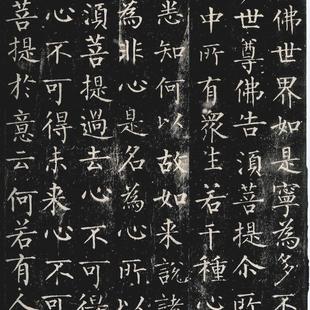 佛世界如是寧為多不
世尊佛告須菩提尒所
中所有衆生若干種心
悉知何以故如来說諸
為非心是名為心所以
須菩提過去心不可得
心不可得未来心不可
菩提於意云何若有人